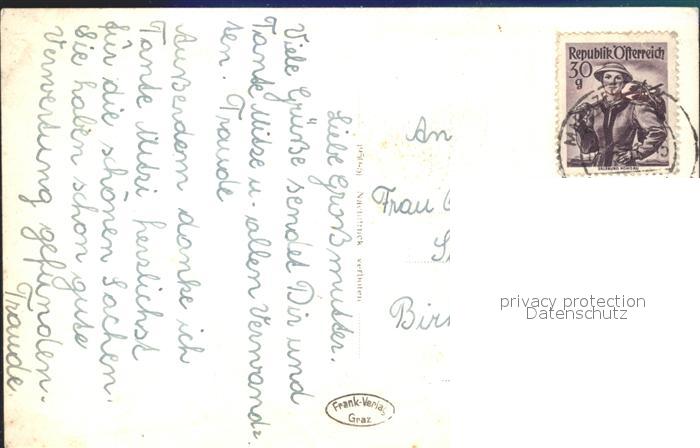 Liebe Großmutter.
Viele Grüße sendet Dir und
Tante Mitze u. allen Verwand=
ten. Traude
Außerdem danke ich
Tante Mitzi herzlichst
für die schönen Sachen.
Sie haben schon gute
Verwertung gefunden.
Traude
Nachdruck verboten
Frank-Verlag
Graz
Republik Österreich
30
g
An
Frau
Birn
privacy protection
Datenschutz